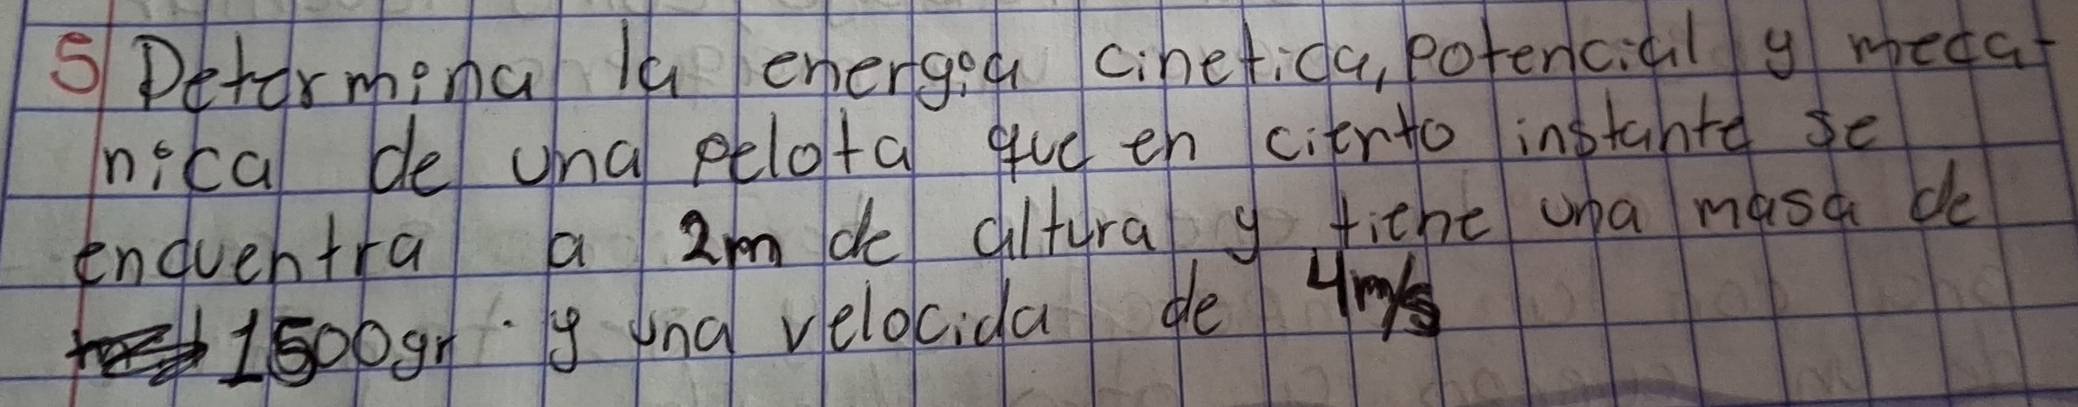 5 Determina la energia cinetica, potencial y meca-
nica de una pelota que en cierto instante se
encuentra a 2m de altura y tiene una masa de
1500gr. y una velocida de 4m/s